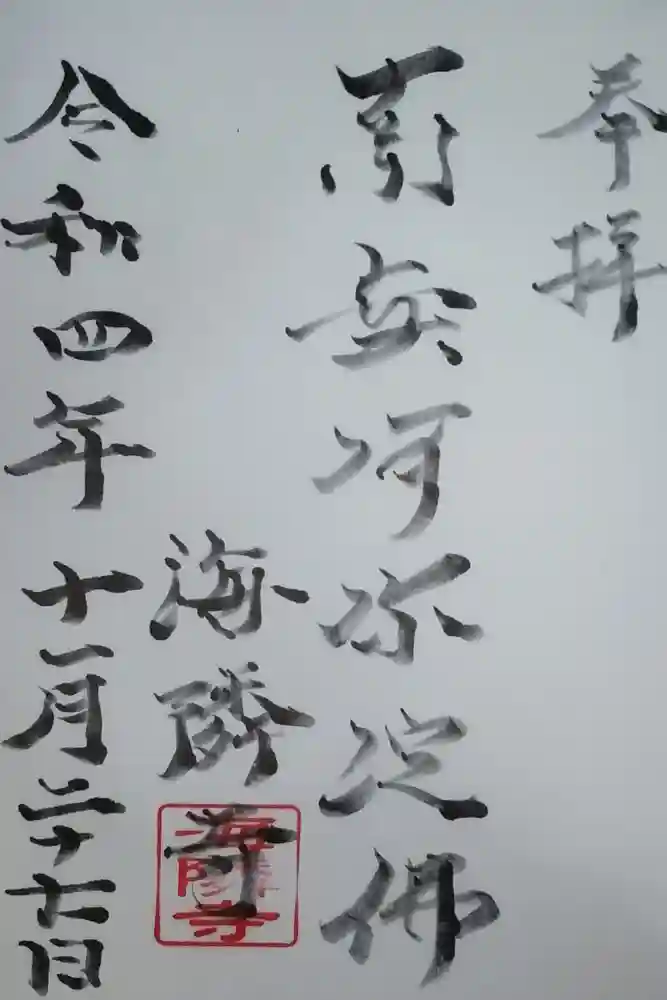 奉拝
南無阿弥陀佛
海隣寺
海隣寺
令和四年十一月二十七日